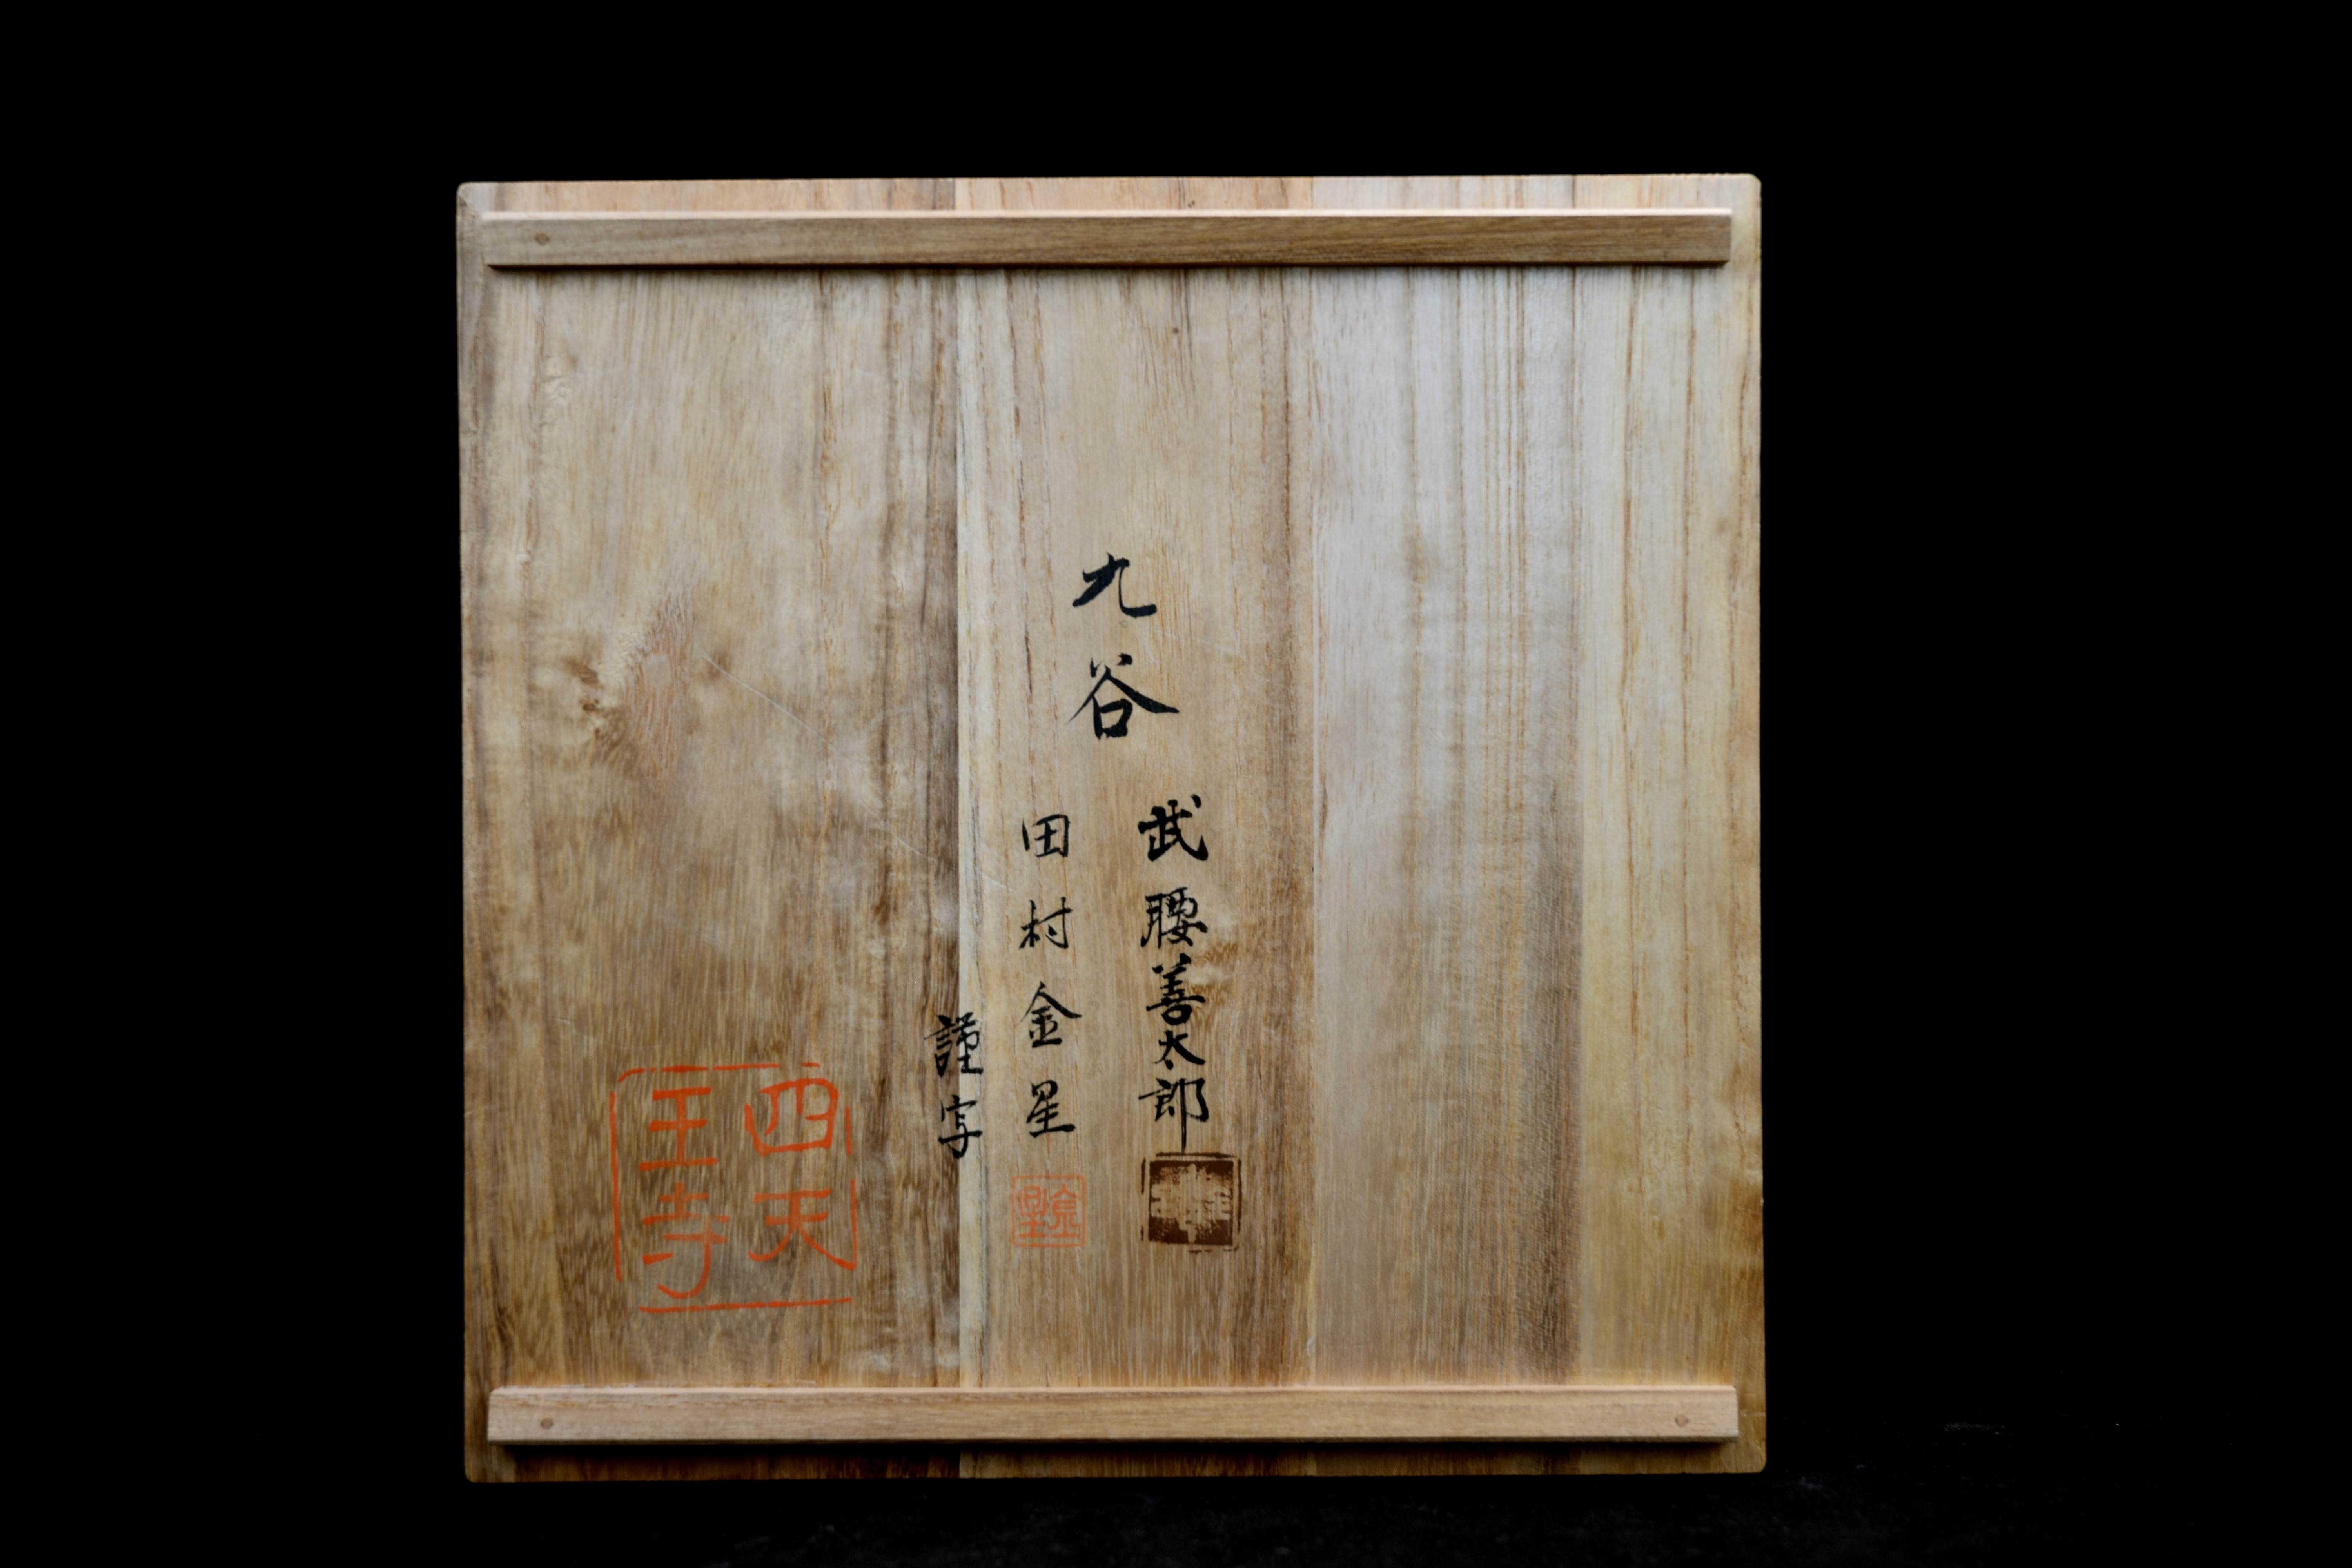 九谷
武腰善太郎
田村金星
謹写
金星
四天王寺